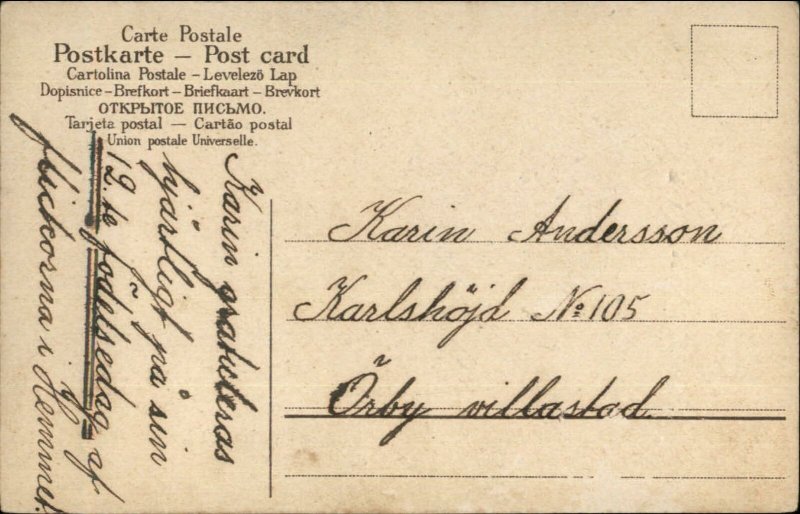 Carte Postale
Postkarte — Post card
Cartolina Postale – Levelező Lap
Dopisnice – Brefkort – Briefkaart – Brevkort
ОТКРЫТОЕ ПИСЬМО.
Tarjeta postal — Cartão postal
Union postale Universelle.
Karin gratuleras
hjärtligt på sin
12.te födelsedag af
flickorna i Hemmet.
Karin Andersson
Karlshöjd No 105
Örby villastad